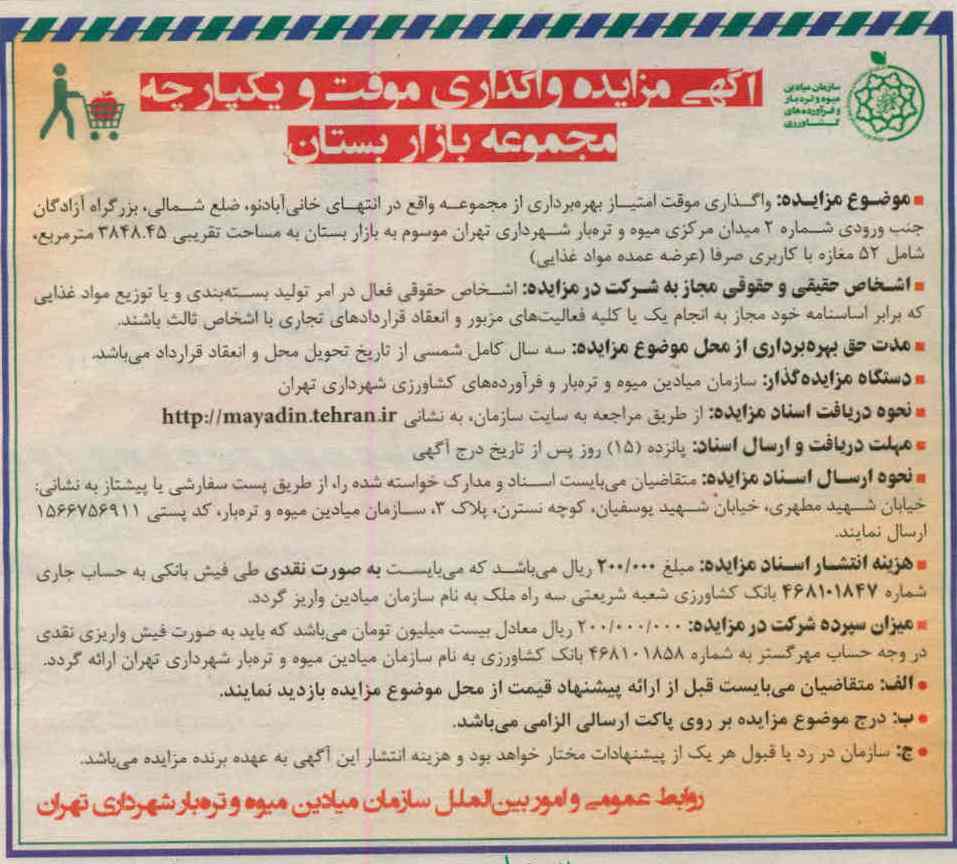 سازمان میادین
میوه و تره بار
و فرآورده های
کشاورزی
آگهی مزایده واگذاری موقت و یکپارچه
مجموعه بازار بستان
موضوع مزایده: واگذاری موقت امتیاز بهره‌برداری از مجموعه واقع در انتهای خانی‌آبادنو، ضلع شمالی، بزرگراه آزادگان
جنب ورودی شماره ۲ میدان مرکزی میوه و تره‌بار شهرداری تهران موسوم به بازار بستان به مساحت تقریبی ۳۸۴۸.۴۵ مترمربع،
شامل ۵۲ مغازه با کاربری صرفا (عرضه عمده مواد غذایی)
اشخاص حقیقی و حقوقی مجاز به شرکت در مزایده: اشخاص حقوقی فعال در امر تولید بسته‌بندی و یا توزیع مواد غذایی
که برابر اساسنامه خود مجاز به انجام یک یا کلیه فعالیت‌های مزبور و انعقاد قراردادهای تجاری با اشخاص ثالث باشند.
مدت حق بهره‌برداری از محل موضوع مزایده: سه سال کامل شمسی از تاریخ تحویل محل و انعقاد قرارداد می‌باشد.
دستگاه مزایده‌گذار: سازمان میادین میوه و تره‌بار و فرآورده‌های کشاورزی شهرداری تهران
نحوه دریافت اسناد مزایده: از طریق مراجعه به سایت سازمان، به نشانی http://mayadin.tehran.ir
مهلت دریافت و ارسال اسناد: پانزده (۱۵) روز پس از تاریخ درج آگهی
نحوه ارسال اسناد مزایده: متقاضیان می‌بایست اسناد و مدارک خواسته شده را، از طریق پست سفارشی یا پیشتاز به نشانی:
خیابان شهید مطهری، خیابان شهید یوسفیان، کوچه نسترن، پلاک ۳، سازمان میادین میوه و تره‌بار، کد پستی ۱۵۶۶۷۵۶۹۱۱
ارسال نمایند.
هزینه انتشار اسناد مزایده: مبلغ ۲۰۰/۰۰۰ ریال می‌باشد که می‌بایست به صورت نقدی طی فیش بانکی به حساب جاری
شماره ۴۶۸۱۰۱۸۴۷ بانک کشاورزی شعبه شریعتی سه راه ملک به نام سازمان میادین واریز گردد.
میزان سپرده شرکت در مزایده: ۲۰۰/۰۰۰/۰۰۰ ریال معادل بیست میلیون تومان می‌باشد که باید به صورت فیش واریزی نقدی
در وجه حساب مهرگستر به شماره ۴۶۸۱۰۱۸۵۸ بانک کشاورزی به نام سازمان میادین میوه و تره‌بار شهرداری تهران ارائه گردد.
الف: متقاضیان می‌بایست قبل از ارائه پیشنهاد قیمت از محل موضوع مزایده بازدید نمایند.
ب: درج موضوع مزایده بر روی پاکت ارسالی الزامی می‌باشد.
ج: سازمان در رد یا قبول هر یک از پیشنهادات مختار خواهد بود و هزینه انتشار این آگهی به عهده برنده مزایده می‌باشد.
روابط عمومی و امور بین‌الملل سازمان میادین میوه و تره‌بار شهرداری تهران